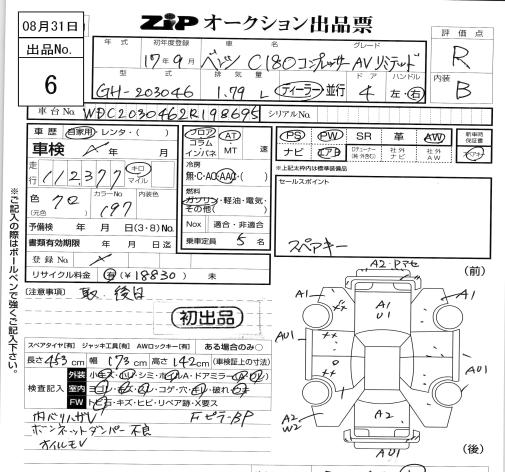 08月31日
出品No.
6
ZIP オークション出品票
評価点
R
内装
B
年式 初年度登録 車名 グレード
17年09月 ベンツ C180コンプレッサーAVリミテッド
型式 排気量 ドア ハンドル
GH-203046 1.79 L ディーラー 並行 4 左・右
車台No. WDC2030462R198695 シリアルNo.
車歴 自家用・レンタ・( )
車検 年 月
走行 112,377 キロ マイル
色 クロ カラーNo. 197 内装色
(元色)
予備検 年 月 日(3・8)No.
書類有効期限 年 月 日迄
登録No.
リサイクル料金 有(¥18830) 未
フロア コラム インパネ AT MT 速
冷房
無・C・AC・AAC・( )
燃料
ガソリン・軽油・電気・その他( )
Nox 適合・非適合
乗車定員 5 名
PS PW SR 革 AW
ナビ エアB 社外ナビ 社外AW
新車時保証書
※上記太枠内は標準装備品
セールスポイント
スペアキー
※ご記入の際はボールペンで強くご記入下さい。
注意事項 取、後日
初出品
スペアタイヤ[有] ジャッキ工具[有] AWロックキー[有] ある場合のみ○
長さ453cm 幅173cm 高さ142cm (車検証上の寸法)
検査記入
外装
室内
FW トビ・キズ・ヒビ・リペア跡・X要ス
内ハリハガV FピラーBP
ボンネットダンパー不良
オイルモV
(前)
A2・Pマセ
A1
A1
A1
U1
AU1
AU1
A2
W2
A2
A1
AU1
(後)